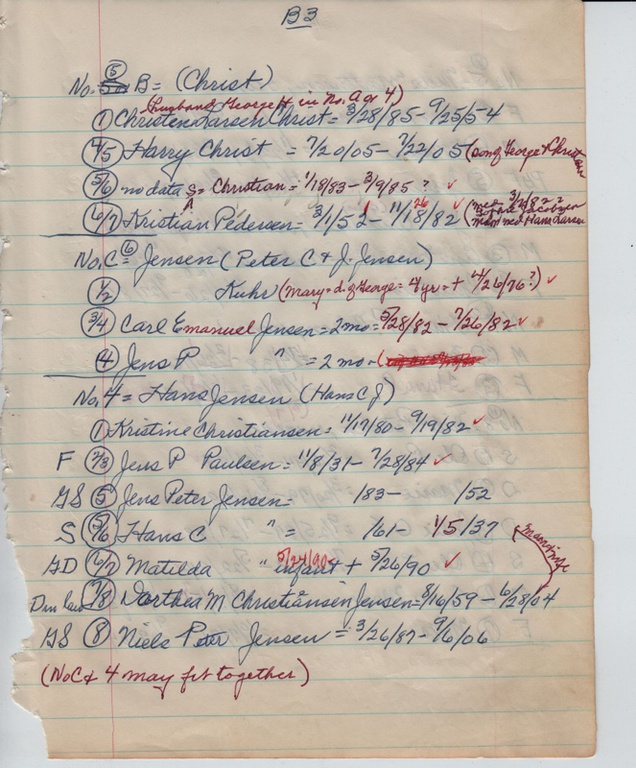 B3
No. 5 B = (Christ)
(husband George H in No. A or 4)
① Christen Larsen Christ = 3/28/85 - 9/25/54
4/5 Harry Christ = 7/20/05 - 7/22/05 (son of George & Christen
5/6 no data S = Christian = 1/18/83 - 3/9/85 ? ✓
6/7 Kristian Pedersen = 3/1/52 - 11/18/82 ✓ (
No. C ⑥ Jensen (Peter C & J. Jensen)
1/2 Kuhr (Mary = d. of George = 4 yr = + 4/26/76?) ✓
3/4 Carl Emanuel Jensen = 2 mo = 5/28/82 - 7/26/82 ✓
④ Jens P " = 2 mo - (
No. 4 = Hans Jensen (Hans C J)
① Kristine Christiansen = 11/17/80 - 9/19/82 ✓
F 2/3 Jens P Paulsen = 11/8/31 - 7/28/84 ✓
GS ⑤ Jens Peter Jensen = /83 - /52
S 5/6 Hans C " = /61 - 1/5/37
GD 6/7 Matilda " 5/24/90 infant + 5/26/90 ✓
Dau law 7/8 Dorthea M Christiansen Jensen = 8/16/59 - 6/28/04
GS ⑧ Niels Peter Jensen = 3/26/87 - 9/6/06
(No C & 4 may fit together)